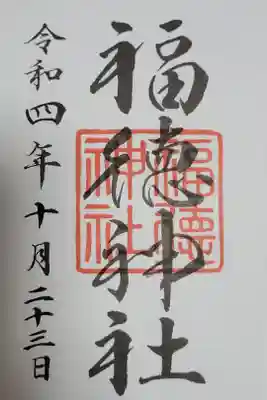 福徳神社
福徳神社
令和四年十月二十三日